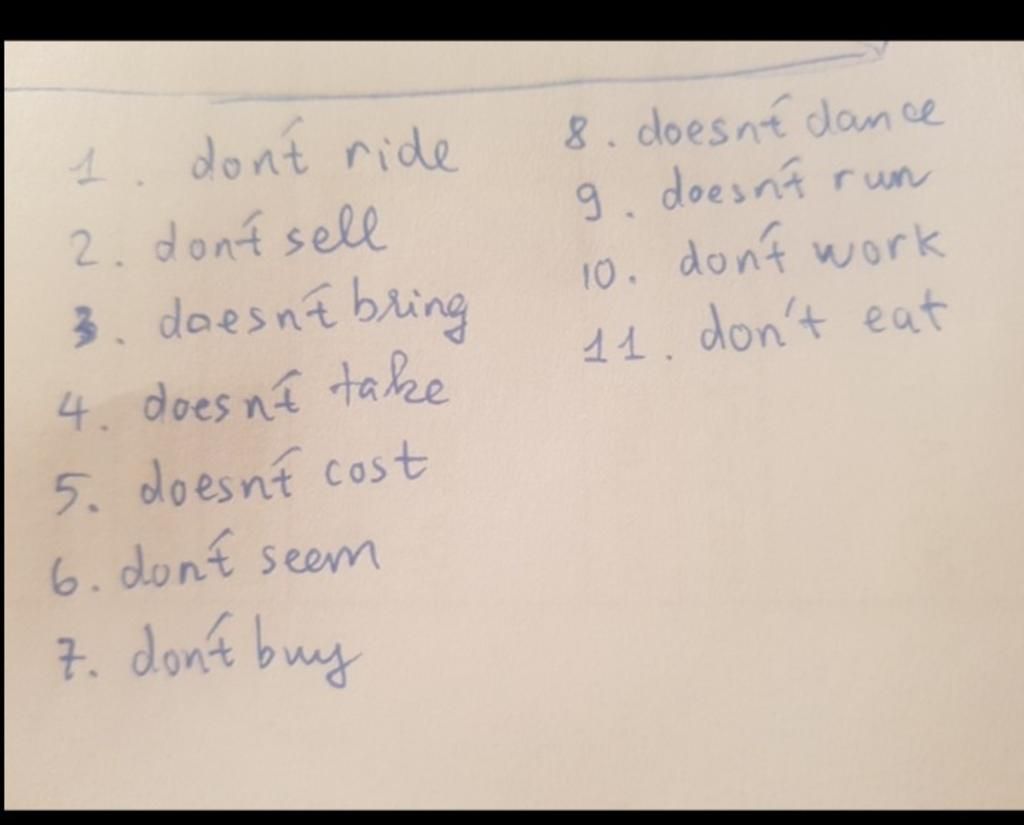 1. don't ride
2. don't sell
3. doesn't bring
4. doesn't take
5. doesn't cost
6. don't seem
7. don't buy
8. doesn't dance
9. doesn't run
10. don't work
11. don't eat